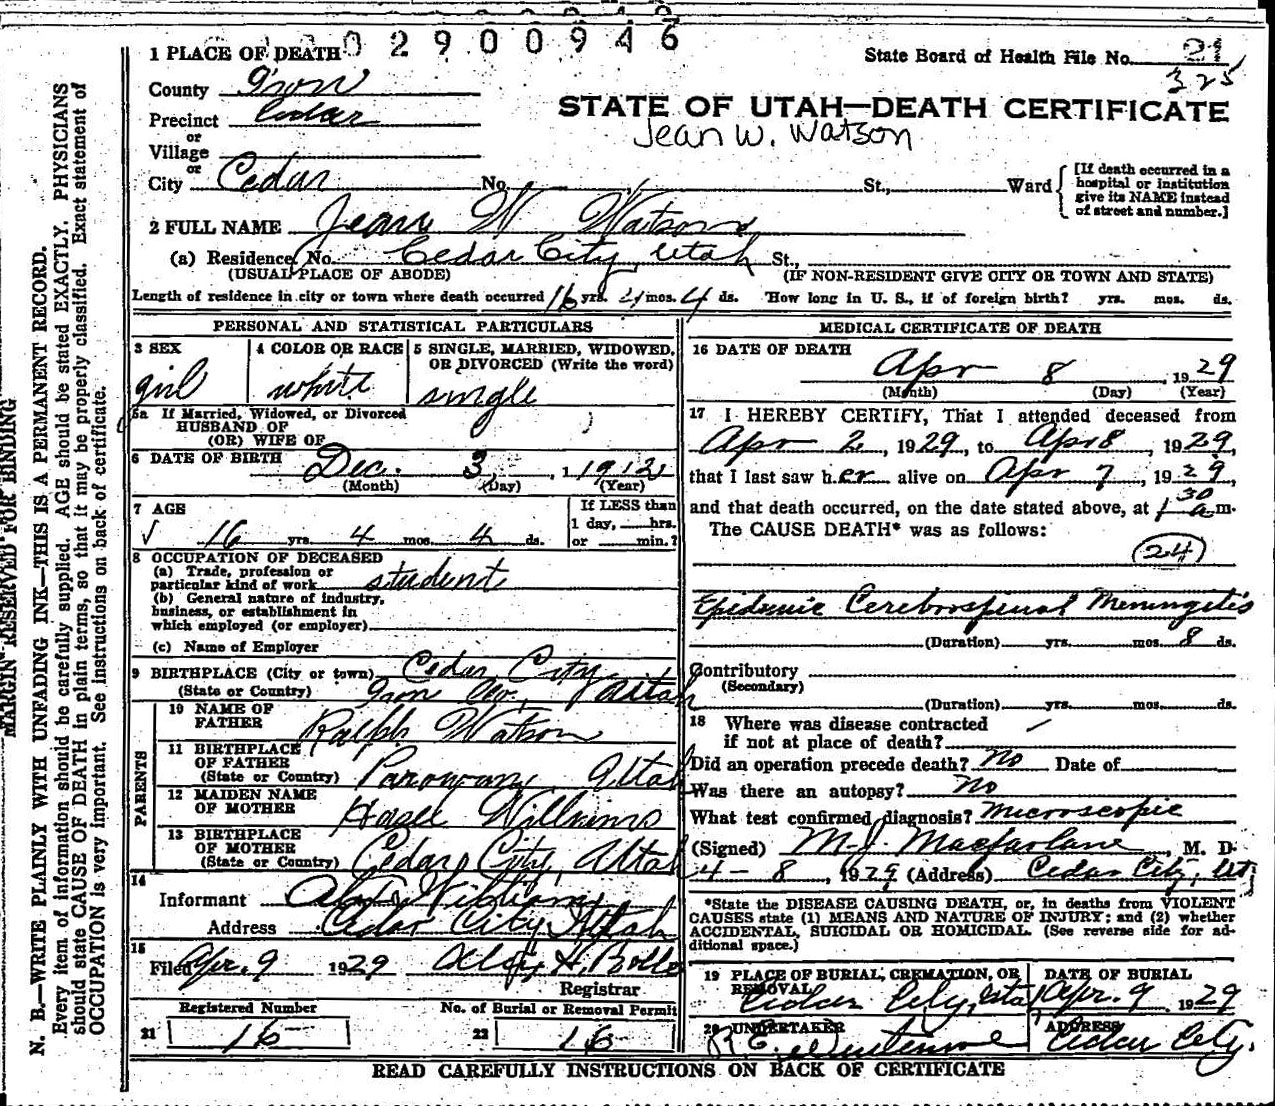 029000946
1 PLACE OF DEATH
State Board of Health File No. 21
325
County Iron
STATE OF UTAH—DEATH CERTIFICATE
Precinct Cedar
Jean W. Watson
or
Village
or
City Cedar No. St., Ward
[If death occurred in a
hospital or institution
give its NAME instead
of street and number.]
2 FULL NAME Jean W Watson
(a) Residence, No. Cedar City, Utah St.,
(USUAL PLACE OF ABODE) (IF NON-RESIDENT GIVE CITY OR TOWN AND STATE)
Length of residence in city or town where death occurred 16 yrs. 4 mos. 4 ds. How long in U. S., if of foreign birth? yrs. mos. ds.
PERSONAL AND STATISTICAL PARTICULARS
3 SEX
girl
4 COLOR OR RACE
white
5 SINGLE, MARRIED, WIDOWED,
OR DIVORCED (Write the word)
single
5a If Married, Widowed, or Divorced
HUSBAND OF
(OR) WIFE OF
6 DATE OF BIRTH Dec. 3, 1912
(Month) (Day) (Year)
7 AGE
16 yrs. 4 mos. 4 ds.
If LESS than
1 day, hrs.
or min.?
8 OCCUPATION OF DECEASED
(a) Trade, profession or
particular kind of work student
(b) General nature of industry,
business, or establishment in
which employed (or employer)
(c) Name of Employer
9 BIRTHPLACE (City or town) Cedar City
(State or Country) Iron Co., Utah
PARENTS
10 NAME OF
FATHER Ralph Watson
11 BIRTHPLACE
OF FATHER
(State or Country) Parowan, Utah
12 MAIDEN NAME
OF MOTHER Hazel Williams
13 BIRTHPLACE
OF MOTHER
(State or Country) Cedar City, Utah
14
Informant Williams
Address Cedar City, Utah
15
Filed Apr. 9 1929
Registrar
Registered Number
21 16
No. of Burial or Removal Permit
22 16
MEDICAL CERTIFICATE OF DEATH
16 DATE OF DEATH
Apr 8, 1929
(Month) (Day) (Year)
17 I HEREBY CERTIFY, That I attended deceased from
Apr 2, 1929, to Apr 8, 1929,
that I last saw her alive on Apr 7, 1929,
and that death occurred, on the date stated above, at 1 30 a m.
The CAUSE DEATH* was as follows:
24
Epidemic Cerebrospinal Meningitis
(Duration) yrs. mos. 8 ds.
Contributory
(Secondary)
(Duration) yrs. mos. ds.
18 Where was disease contracted
if not at place of death?
Did an operation precede death? No Date of
Was there an autopsy? No
What test confirmed diagnosis? Microscopic
(Signed) M. J. Macfarlane, M. D.
4-8, 1929 (Address) Cedar City, Ut
*State the DISEASE CAUSING DEATH, or, in deaths from VIOLENT
CAUSES state (1) MEANS AND NATURE OF INJURY; and (2) whether
ACCIDENTAL, SUICIDAL OR HOMICIDAL. (See reverse side for ad-
ditional space.)
19 PLACE OF BURIAL, CREMATION, OR
REMOVAL
Cedar City, Utah
DATE OF BURIAL
Apr. 9 1929
20 UNDERTAKER
R. E.
ADDRESS
Cedar City.
READ CAREFULLY INSTRUCTIONS ON BACK OF CERTIFICATE
MARGIN RESERVED FOR BINDING
N. B.—WRITE PLAINLY WITH UNFADING INK—THIS IS A PERMANENT RECORD.
Every item of information should be carefully supplied. AGE should be stated EXACTLY. PHYSICIANS
should state CAUSE OF DEATH in plain terms, so that it may be properly classified. Exact statement of
OCCUPATION is very important. See instructions on back of certificate.